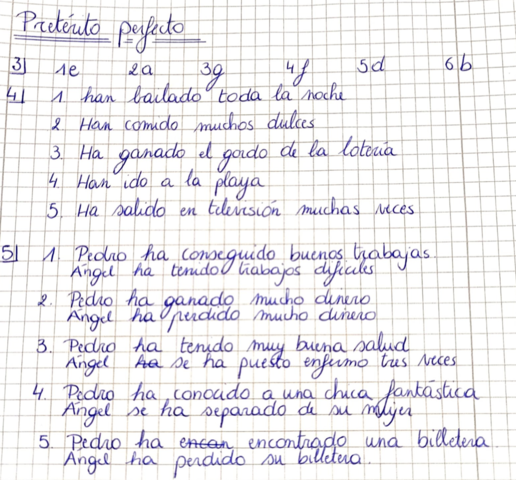 Pretérito perfecto
3) 1e 2a 3g 4f 5d 6b
4) 1 han bailado toda la noche
2 Han comido muchos dulces
3. Ha ganado el gordo de la lotería
4. Han ido a la playa
5. Ha salido en televisión muchas veces
5) 1. Pedro ha conseguido buenos trabajas
Ángel ha tenido trabajos difíciles
2. Pedro ha ganado mucho dinero
Ángel ha perdido mucho dinero
3. Pedro ha tenido muy buena salud
Ángel ha se ha puesto enfermo tres veces
4. Pedro ha conocido a una chica fantástica
Ángel se ha separado de su mujer
5. Pedro ha encon encontrado una billetera.
Ángel ha perdido su billetera.